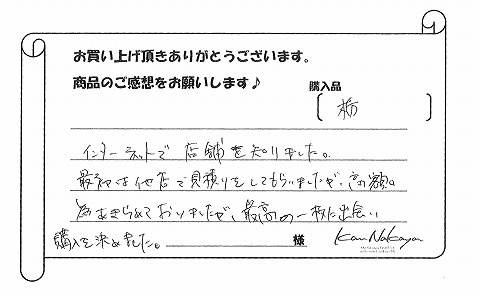 お買い上げ頂きありがとうございます。
商品のご感想をお願いします♪
購入品
栃
インターネットで店舗を知りました。
最初は他店で見積りをしてもらいましたが、高額の
為あきらめておりましたが、最高の一枚に出会い
購入を決めました。
様
Kan Nakayan